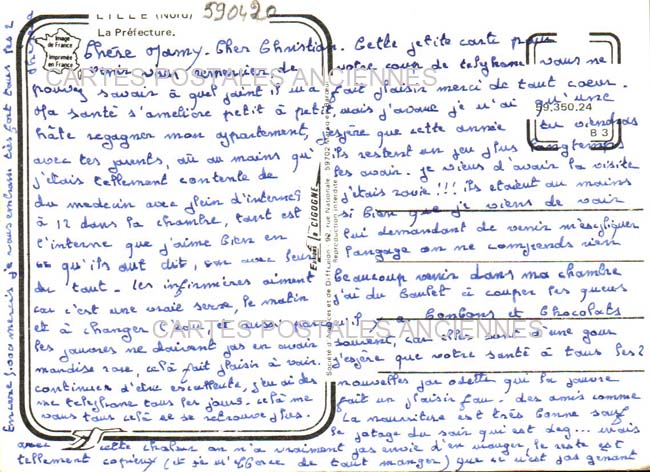 LILLE (Nord)
590420
La Préfecture.
Image de France
Imprimée en France
Chère Mamy. Cher Christian. Cette petite carte pour
venir vous remercier de votre coup de telephone vous ne
pouvez savoir à quel point il m'a fait plaisir merci de tout coeur.
Ma santé s'améliore petit à petit, mais j'avoue je n'ai qu'une
hâte regagner mon appartement, j'espère que cette année tu viendras
avec tes parents, où au moins qu'ils restent un peu plus longtemps
j'étais tellement contente de les avoir. je viens d'avoir la visite
du medecin avec plein d'internes j'étais ravie!!! Ils étaient au moins
à 12 dans la chambre, tant est si bien que je viens de voir
l'interne que j'aime bien en lui demandant de venir m'expliquer
ce qu'ils ont dit, car avec leur langage on ne comprends rien
du tout. Les infirmières aiment beaucoup venir dans ma chambre
car c'est une vraie serre, le matin j'ai du boulot à couper les queues
et à changer l'eau et aussi parce qu'il y a bonbons et chocolats
les pauvres ne doivent pas en avoir souvent, car elles sont d'une gour
mandise rare, celà fait plaisir à voir. j'espère que votre santé à tous les 2
continuer d'être excellente, j'eu ai des nouvelles par odette qui la pauvre
me telephone tous les jours. celà me fait un plaisir fou. des amis comme
vous tous celà ne se retrouve plus. La nourriture est très bonne sauf
le potage du soir qui est deg... mais
avec cette chaleur on n'a vraiment pas envie d'en manger, le reste est
tellement copieux (et je m'efforce de tout manger) que ce n'est pas genant
Encore 1.000 mercis je vous embrasse très fort tous les 2
59.350.24
B 3
Editions "La CIGOGNE"
Société d'Agences et de Diffusion - 92, rue Nationale - 59702 Marcq-en-Barœul
Reproduction interdite
CARTES POSTALES ANCIENNES
CARTES POSTALES ANCIENNES